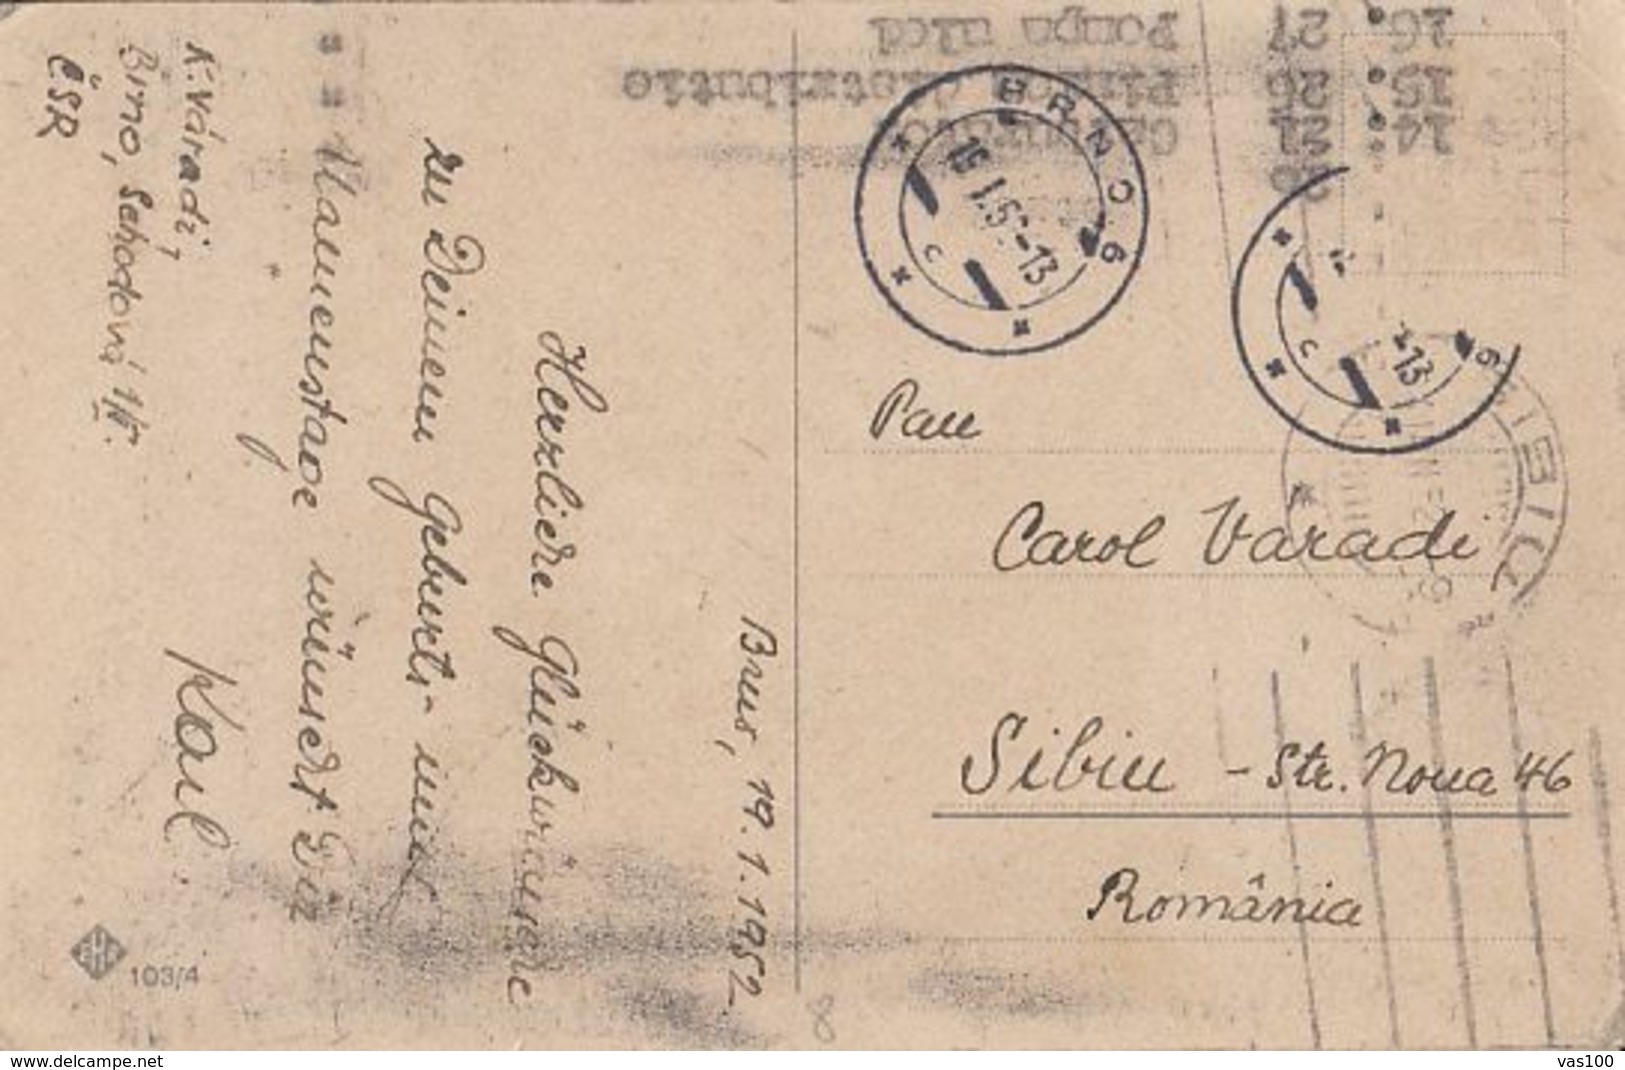 K. Váradi,
Brno, Sehodová 1/II.
ČSR
Brno, 19.1.1952
Herzliche Glückwünsche
zu Deinem Geburts- und
Namenstage wünscht Dir
Karl
103/4
BRNO 6
-13
C
6
-13
C
SIBIU
Pan
Carol Varadi
Sibiu - Str. Noua 46
România
8
16. 27 Pompa ulei
15. 26
14. 21
www.delcampe.net
vas100